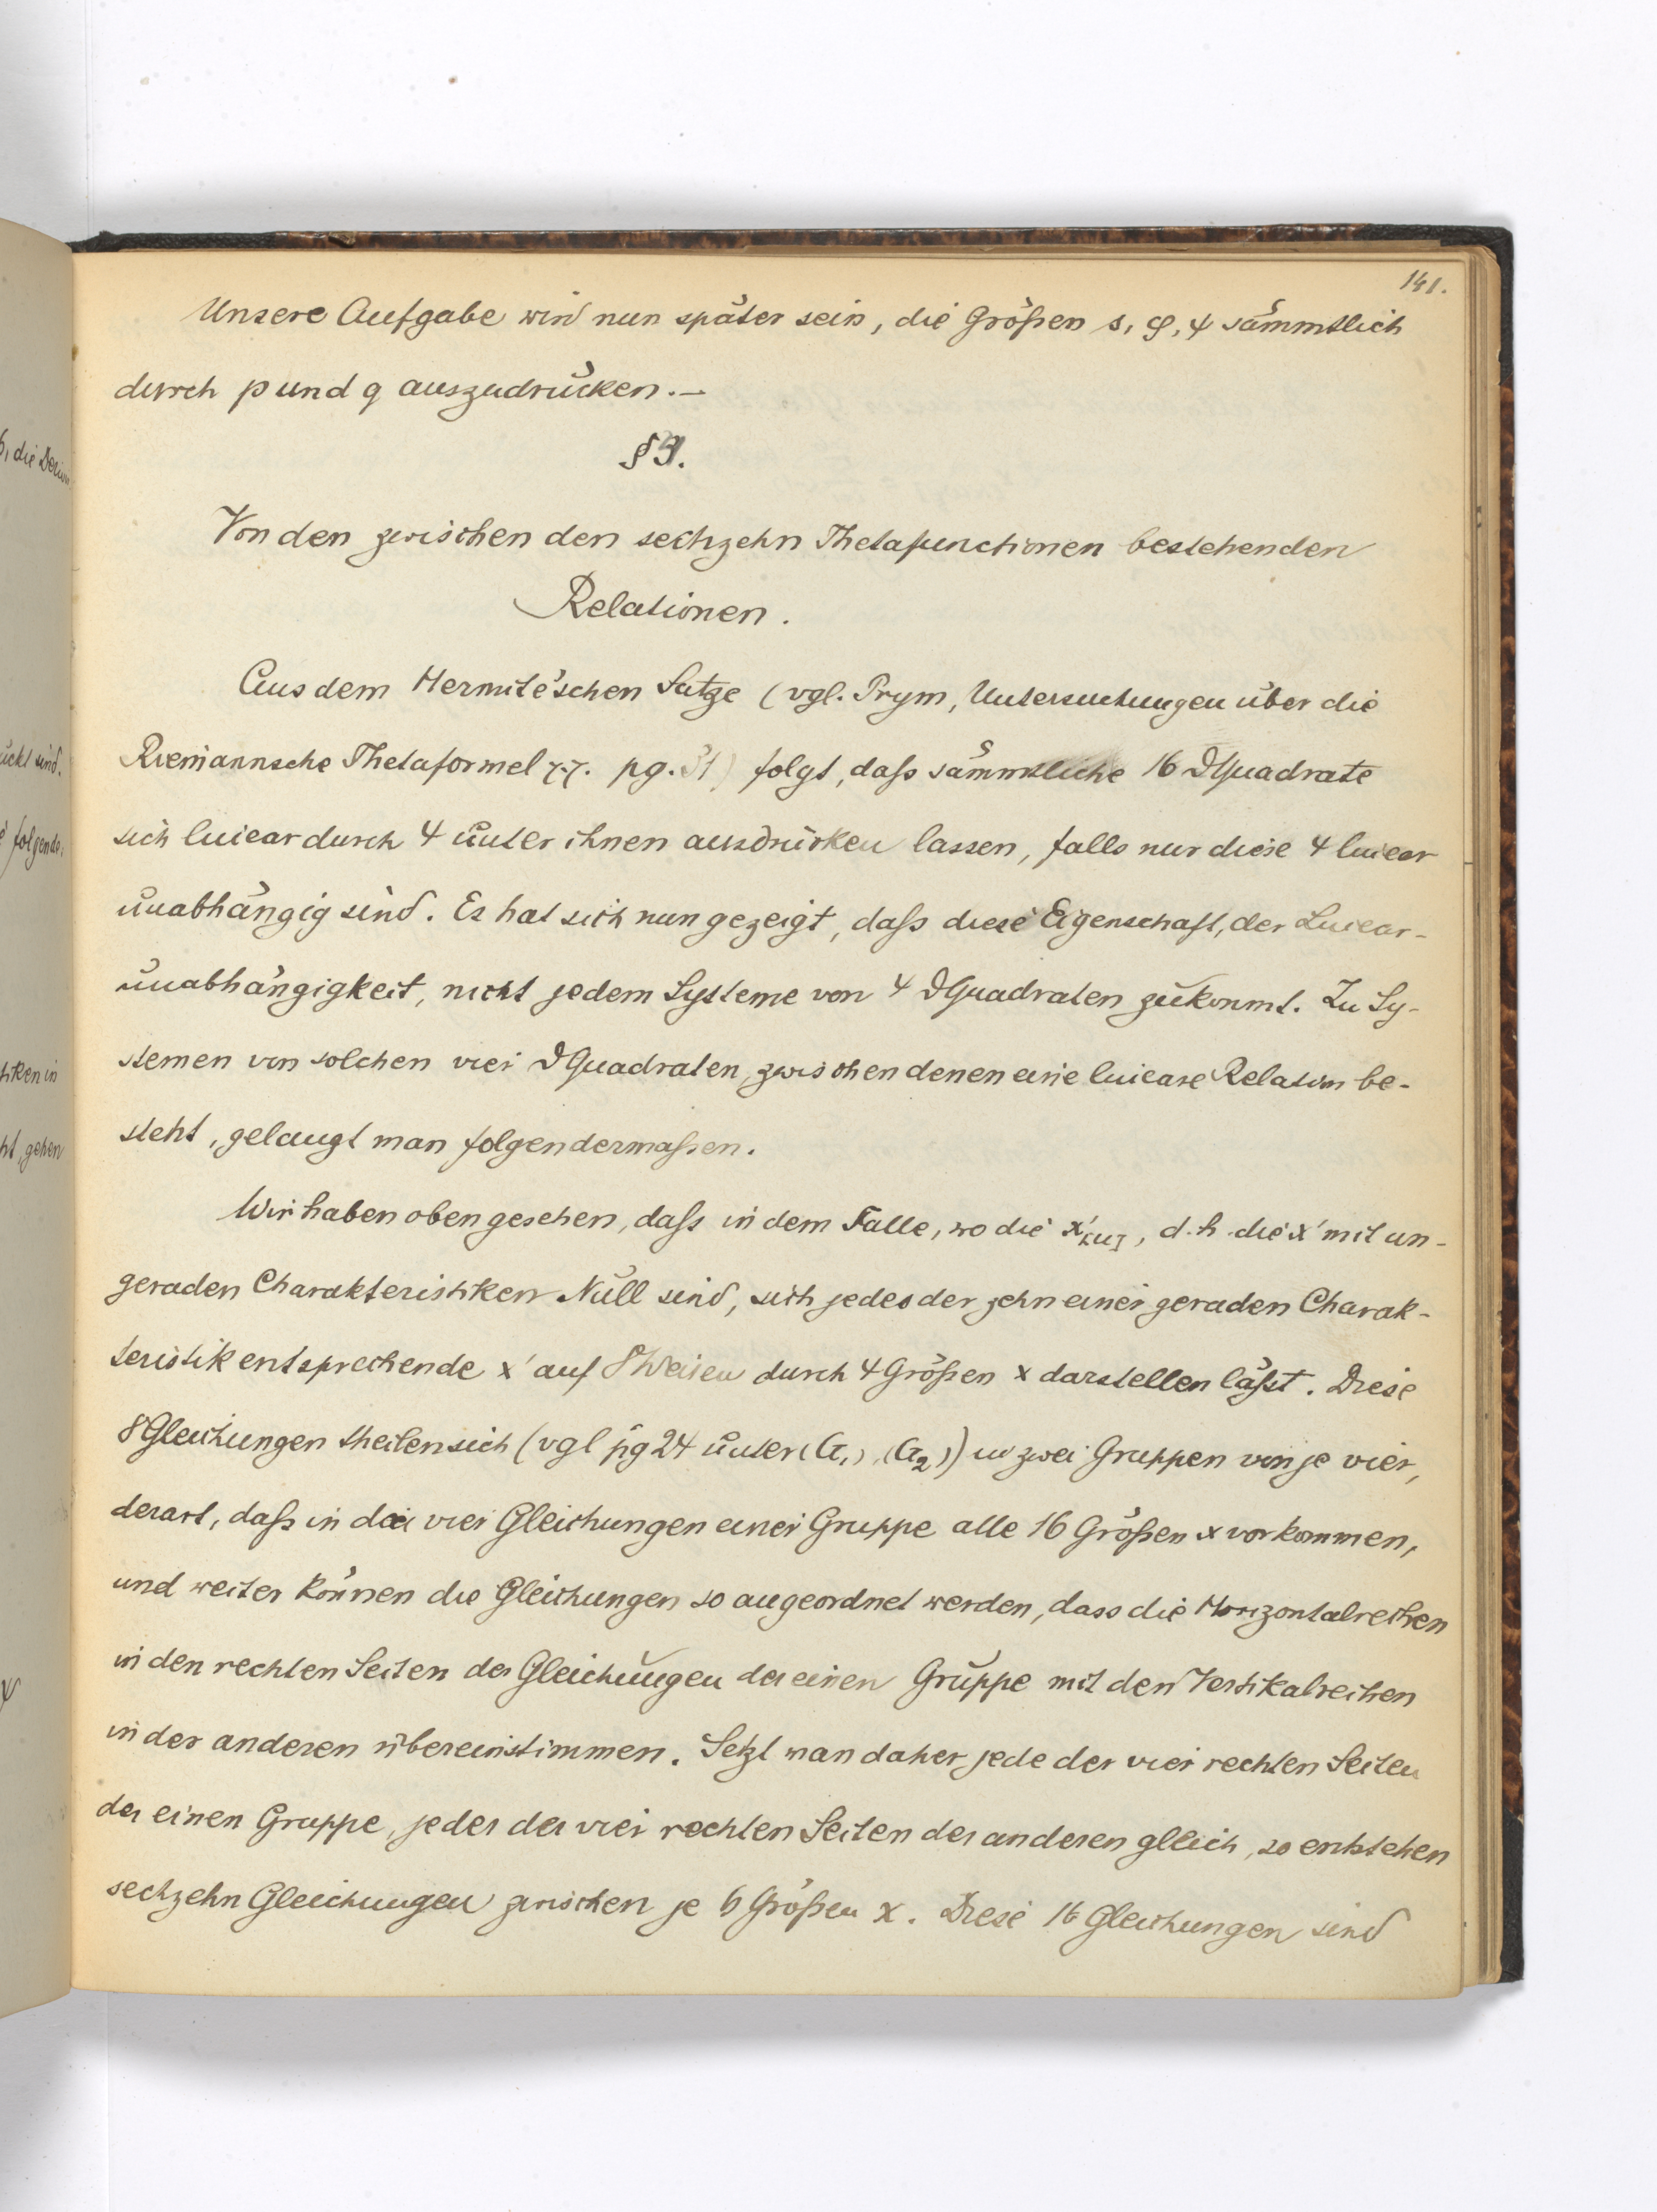 141.
Unsere Aufgabe wird nun später sein, die Größen s, φ, ψ sämmtlich
durch p und q auszudrücken. —
§ 9.
Von den zwischen den sechzehn Thetafunctionen bestehenden
Relationen.
Aus dem Hermite'schen Satze (vgl. Prym, Untersuchungen über die
Riemannsche Thetaformel pg. 31) folgt, daß sämmtliche 16 ϑQuadrate
sich linear durch 4 unter ihnen ausdrücken lassen, falls nur diese 4 linear
unabhängig sind. Es hat sich nun gezeigt, daß diese Eigenschaft, der Linear-
unabhängigkeit, nicht jedem Systeme von 4 ϑQuadraten zukommt. Zu Sy-
stemen von solchen vier ϑQuadraten, zwischen denen eine lineare Relation be-
steht, gelangt man folgendermaßen.
Wir haben oben gesehen, daß in dem Falle, wo die x'[ω], d. h. die x' mit un-
geraden Charakteristiken Null sind, sich jedes der zehn einer geraden Charak-
teristik entsprechende x' auf 8 Weisen durch 4 Größen x darstellen läßt. Diese
8 Gleichungen theilen sich (vgl pg 24 unter (a₁), (a₂)) in zwei Gruppen von je vier,
derart, daß in den vier Gleichungen einer Gruppe alle 16 Größen x vorkommen,
und weiter können die Gleichungen so angeordnet werden, dass die Horizontalreihen
in den rechten Seiten der Gleichungen der einen Gruppe mit den Vertikalreihen
in der anderen übereinstimmen. Setzt man daher jede der vier rechten Seiten
der einen Gruppe, jeder der vier rechten Seiten der anderen gleich, so entstehen
sechzehn Gleichungen zwischen je 6 Größen x. Diese 16 Gleichungen sind
, die
ückt sind.
folgende
tiken in
ht, gehen
ψ